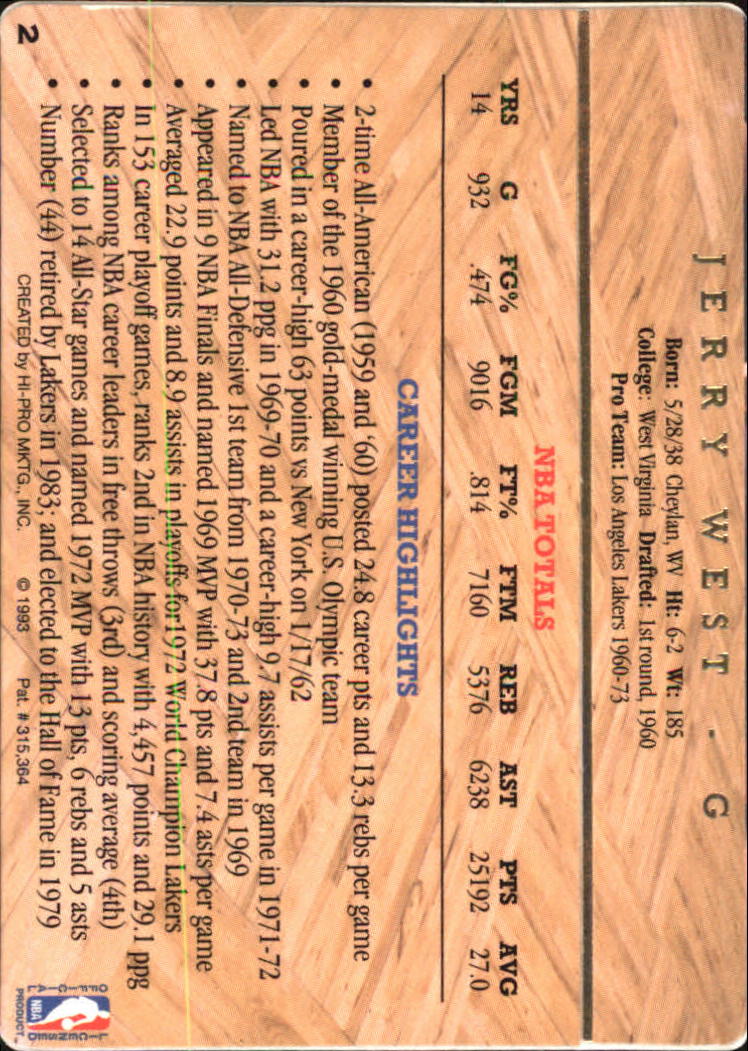 JERRY WEST - G
Born: 5/28/38 Cheylan, WV Ht: 6-2 Wt: 185
College: West Virginia Drafted: 1st round, 1960
Pro Team: Los Angeles Lakers 1960-73
NBA TOTALS
YRS G FG% FGM FT% FTM REB AST PTS AVG
14 932 .474 9016 .814 7160 5376 6238 25192 27.0
CAREER HIGHLIGHTS
• 2-time All-American (1959 and '60) posted 24.8 career pts and 13.3 rebs per game
• Member of the 1960 gold-medal winning U.S. Olympic team
• Poured in a career-high 63 points vs New York on 1/17/62
• Led NBA with 31.2 ppg in 1969-70 and a career-high 9.7 assists per game in 1971-72
• Named to NBA All-Defensive 1st team from 1970-73 and 2nd team in 1969
• Appeared in 9 NBA Finals and named 1969 MVP with 37.8 pts and 7.4 asts per game
• Averaged 22.9 points and 8.9 assists in playoffs for 1972 World Champion Lakers
• In 153 career playoff games, ranks 2nd in NBA history with 4,457 points and 29.1 ppg
• Ranks among NBA career leaders in free throws (3rd) and scoring average (4th)
• Selected to 14 All-Star games and named 1972 MVP with 13 pts, 6 rebs and 5 asts
• Number (44) retired by Lakers in 1983; and elected to the Hall of Fame in 1979
2
CREATED by HI-PRO MKTG., INC. © 1993 Pat. # 315,364
OFFICIAL LICENSED
NBA
PRODUCT